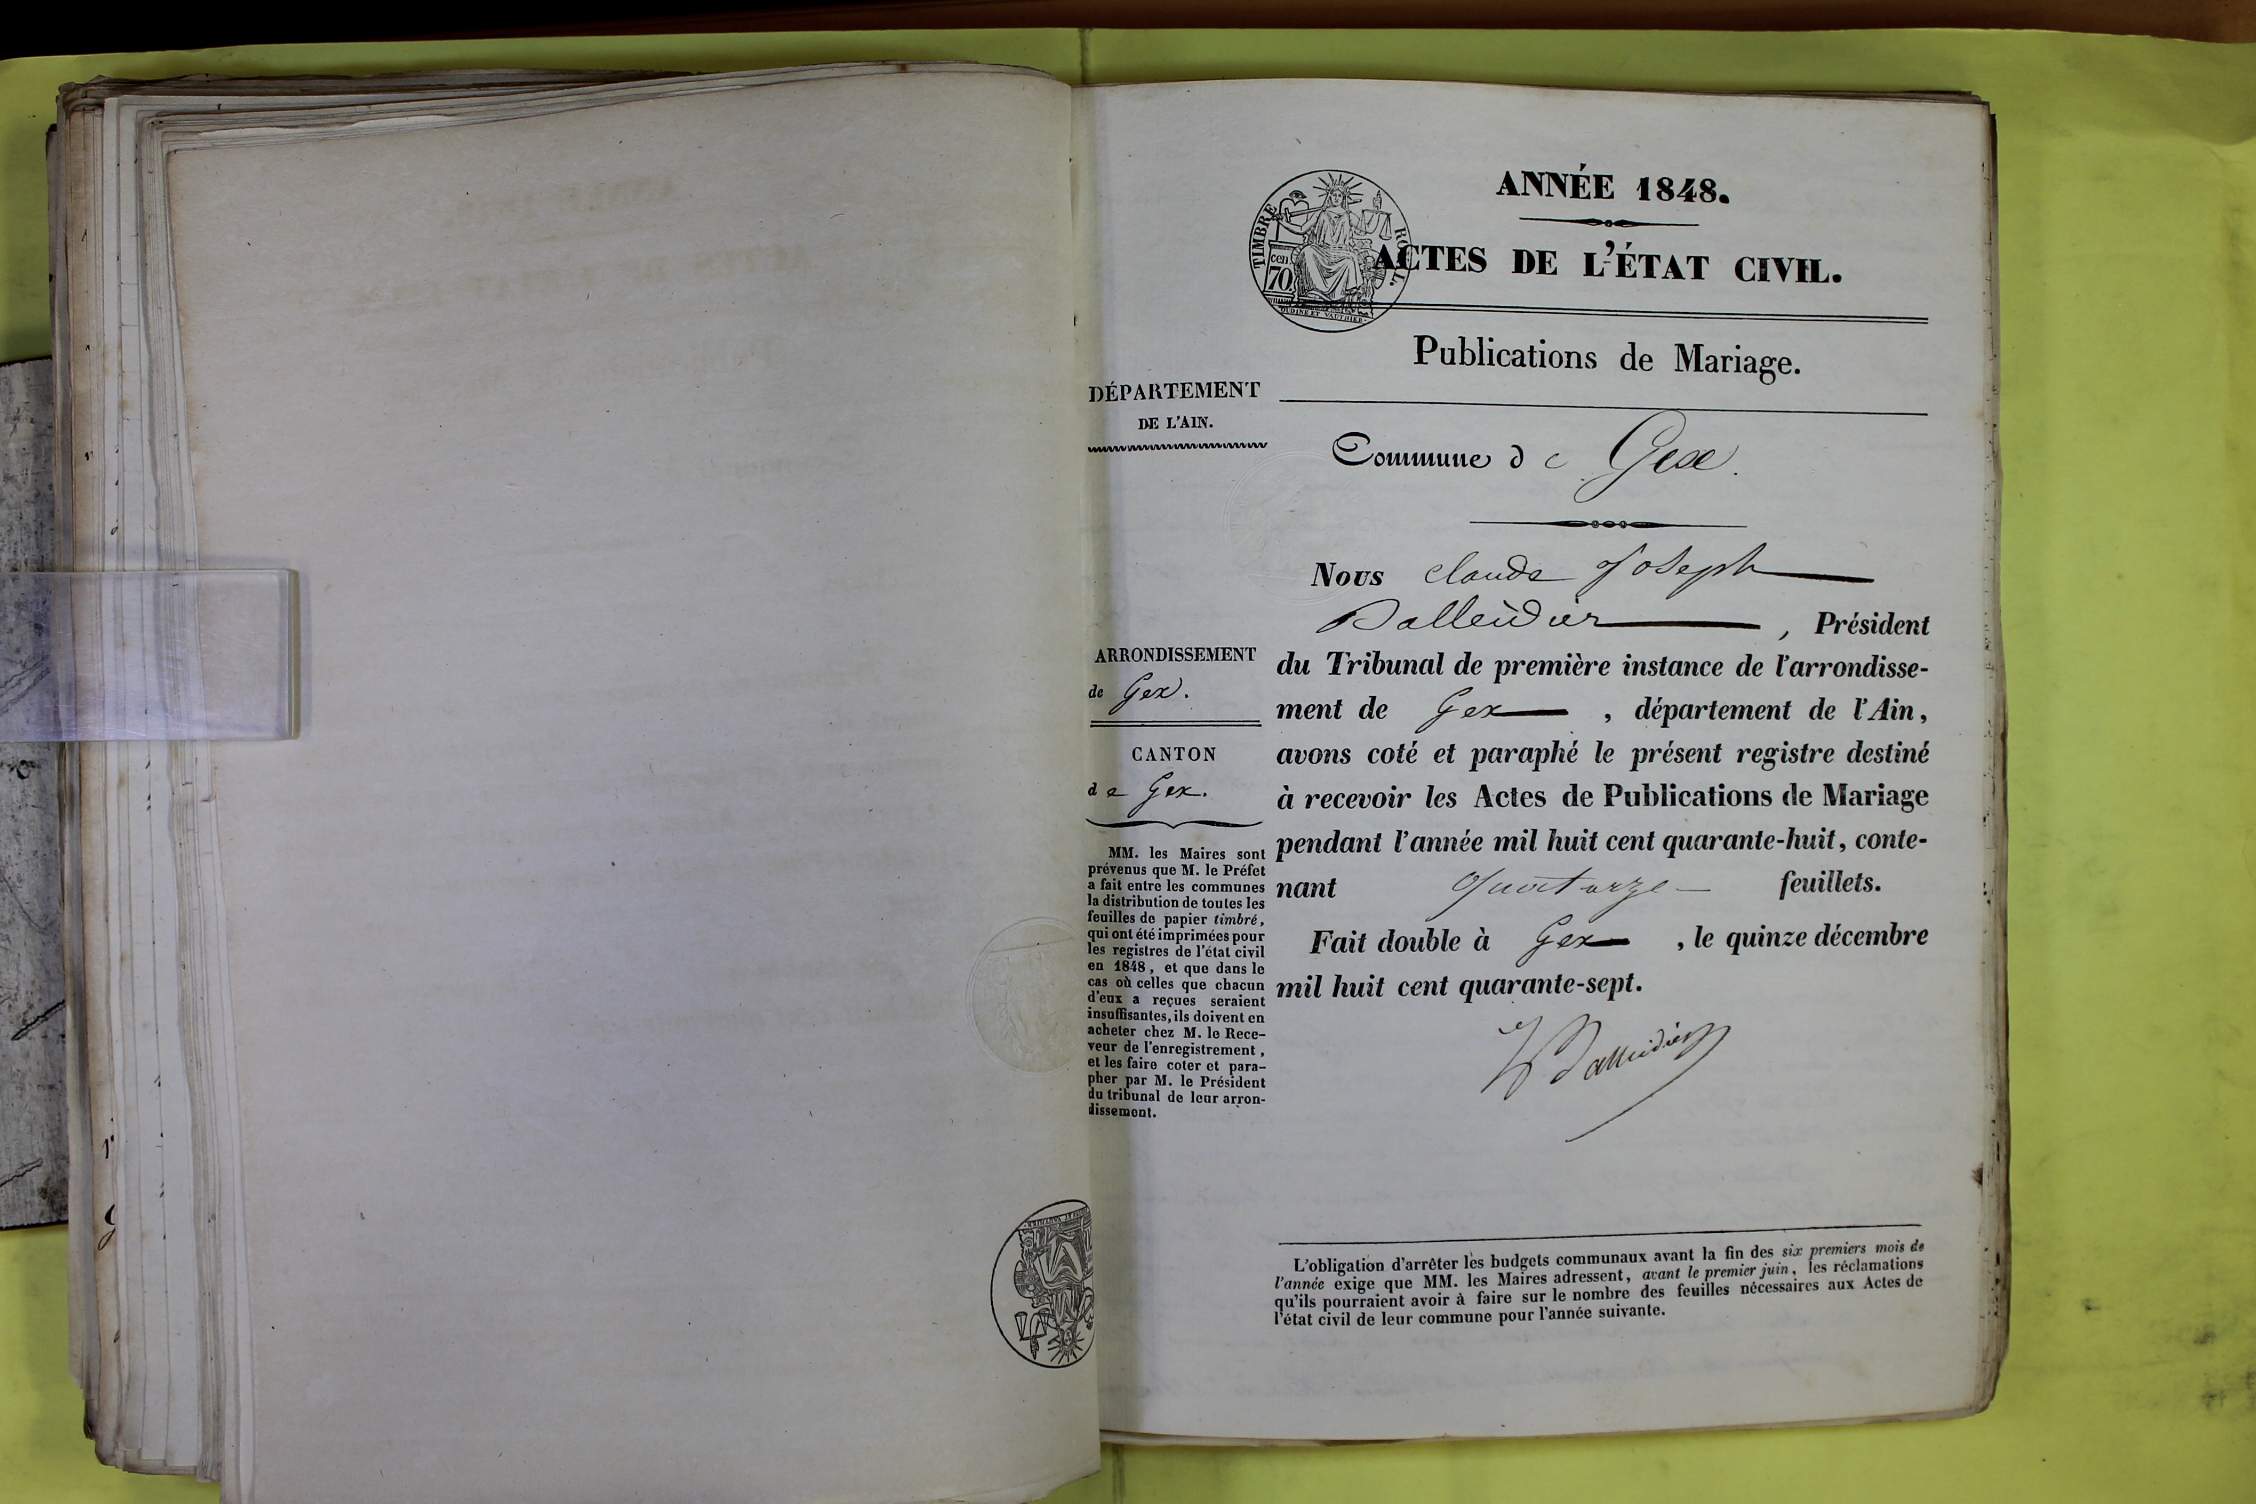 ANNÉE 1848.
TIMBRE ROYAL.
cen
70.
OUDINE ET VAUTHIER
ACTES DE L'ÉTAT CIVIL.
Publications de Mariage.
DÉPARTEMENT
DE L'AIN.
Commune de Gex.
ARRONDISSEMENT
de Gex.
CANTON
de Gex.
MM. les Maires sont
prévenus que M. le Préfet
a fait entre les communes
la distribution de toutes les
feuilles de papier timbré,
qui ont été imprimées pour
les registres de l'état civil
en 1848, et que dans le
cas où celles que chacun
d'eux a reçues seraient
insuffisantes, ils doivent en
acheter chez M. le Rece-
veur de l'enregistrement,
et les faire coter et para-
pher par M. le Président
du tribunal de leur arron-
dissement.
Nous Claude Joseph
Balleidier, Président
du Tribunal de première instance de l'arrondisse-
ment de Gex, département de l'Ain,
avons coté et paraphé le présent registre destiné
à recevoir les Actes de Publications de Mariage
pendant l'année mil huit cent quarante-huit, conte-
nant quatorze feuillets.
Fait double à Gex, le quinze décembre
mil huit cent quarante-sept.
Balleidier
L'obligation d'arrêter les budgets communaux avant la fin des six premiers mois de
l'année exige que MM. les Maires adressent, avant le premier juin, les réclamations
qu'ils pourraient avoir à faire sur le nombre des feuilles nécessaires aux Actes de
l'état civil de leur commune pour l'année suivante.